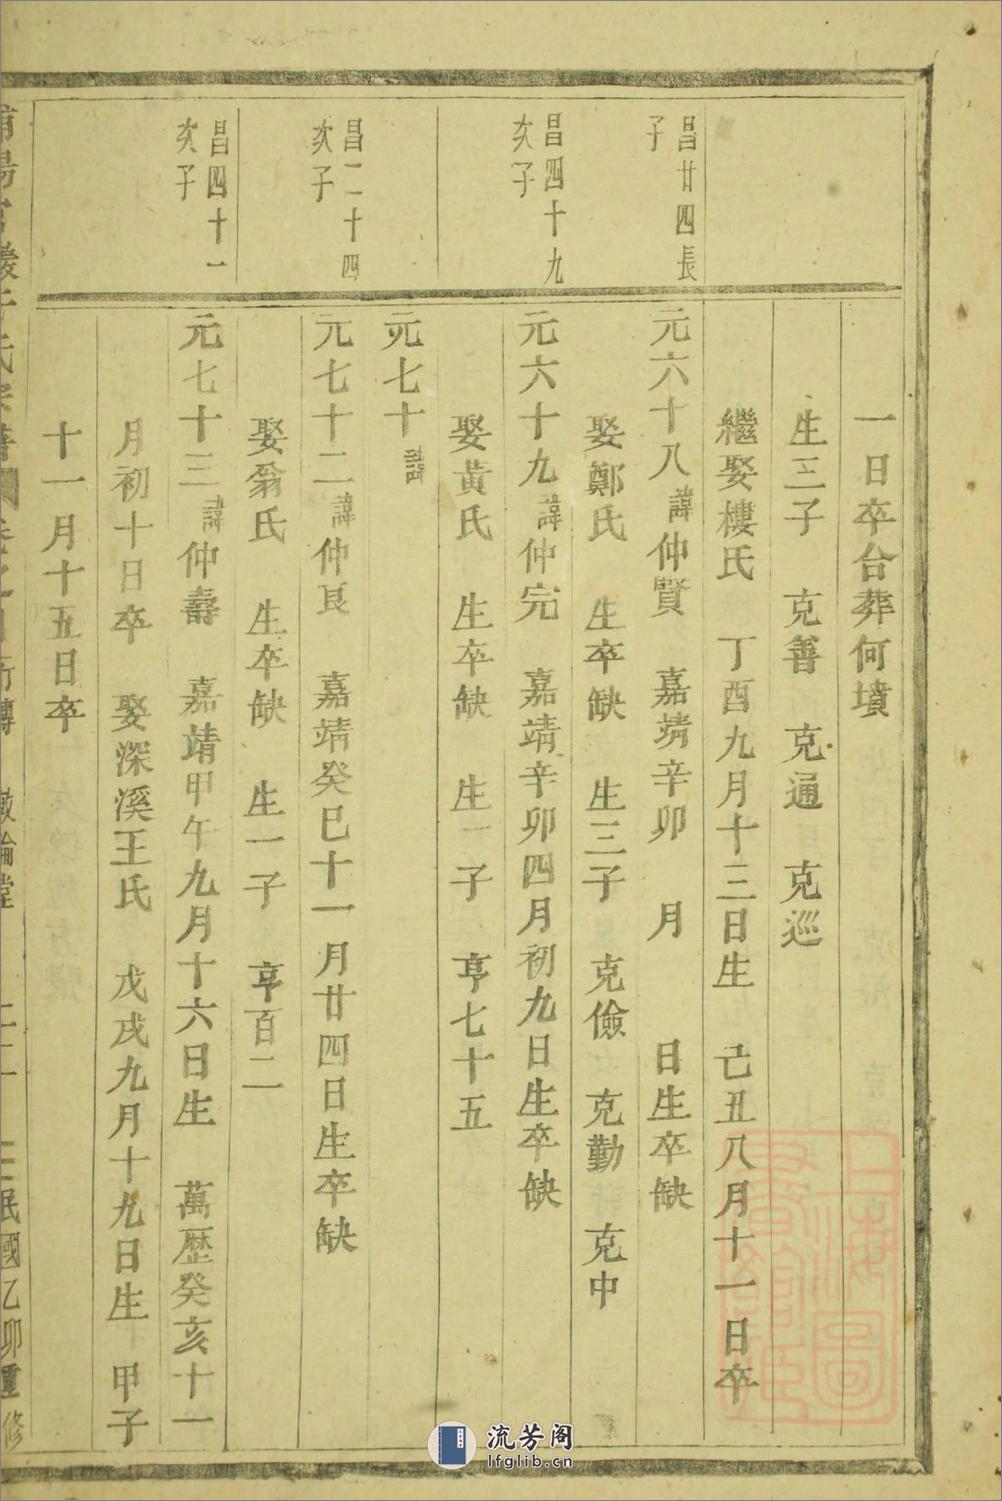 一日卒合葬何墳
生三子 克善 克通 克巡
繼娶樓氏 丁酉九月十三日生 己丑八月十一日卒
昌廿四長子
元六十八諱仲賢 嘉靖辛卯 月 日生卒缺
娶鄭氏 生卒缺 生三子 克儉 克勤 克中
昌四十九次子
元六十九諱仲完 嘉靖辛卯四月初九日生卒缺
娶黃氏 生卒缺 生一子 亨七十五
元七十諱
昌二十四次子
元七十二諱仲良 嘉靖癸巳十一月廿四日生卒缺
娶翁氏 生卒缺 生一子 亨百二
昌四十一次子
元七十三諱仲壽 嘉靖甲午九月十六日生 萬歷癸亥十一
月初十日卒 娶深溪王氏 戊戌九月十九日生 甲子
十一月十五日卒
民國乙卯重修
流芳阁
lfglib.cn